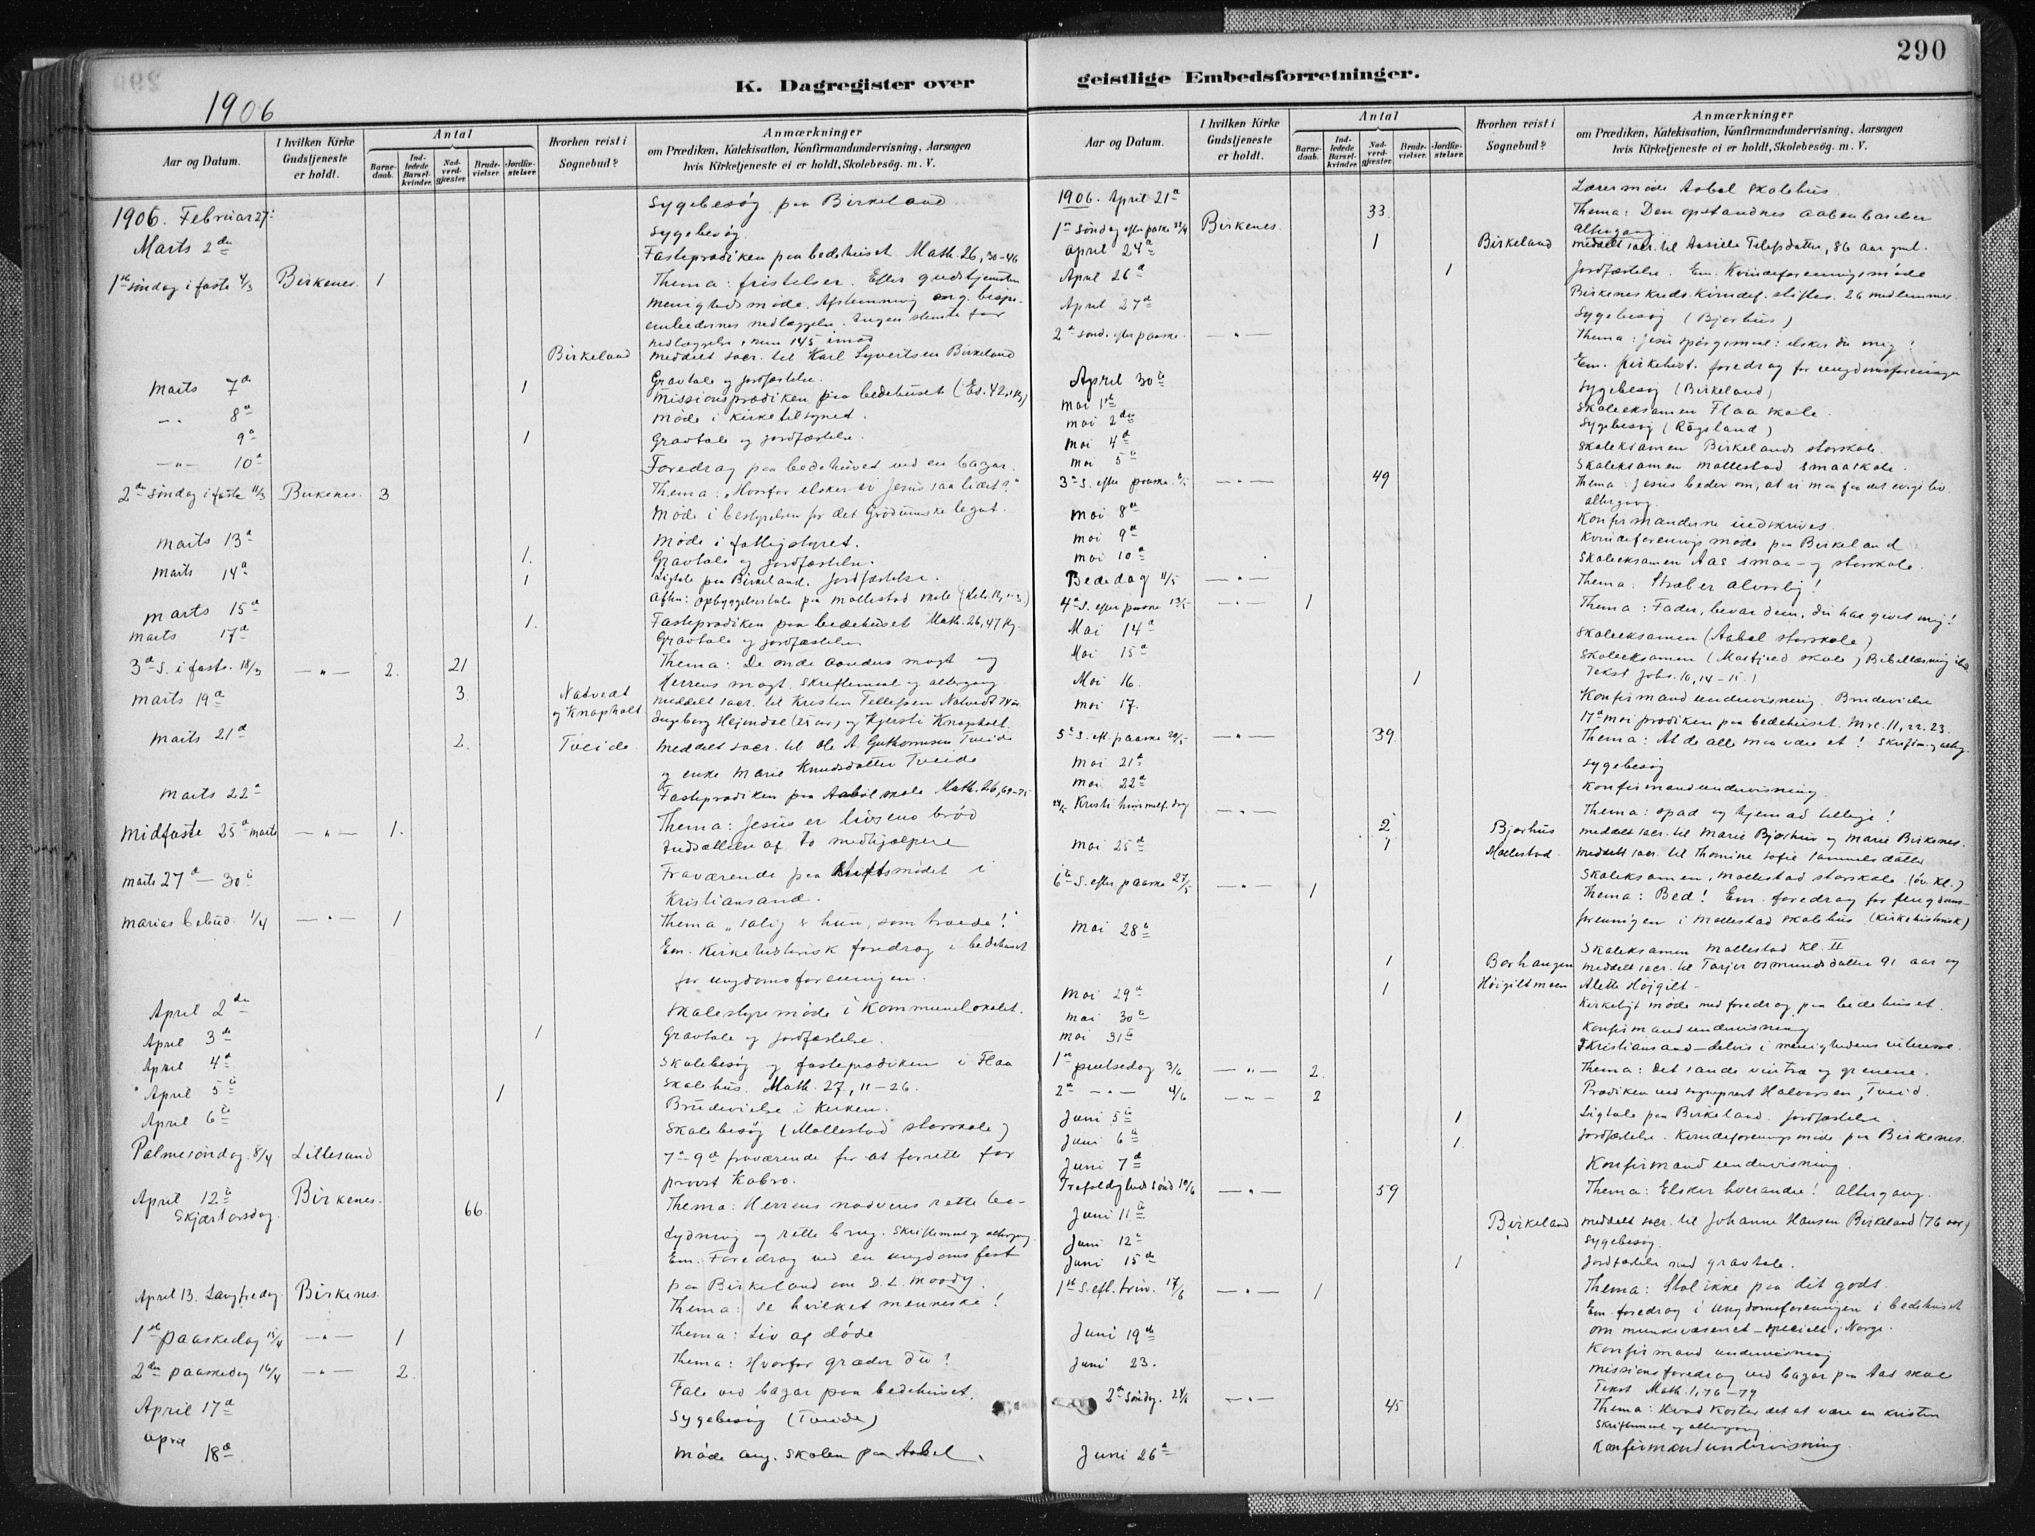 290
K. Dagregister over geistlige Embedsforretninger.
1906
Aar og Datum.
I hvilken Kirke Gudstjeneste er holdt.
Antal
Barnedaab.
Indledede Barselkvinder.
Nadverdgjæster.
Brudevielser.
Jordfæstelser.
Hvorhen reist i Sognebud?
Anmærkninger
om Prædiken, Katekisation, Konfirmandundervisning, Aarsagen hvis Kirketjeneste ei er holdt, Skolebesøg. m. V.
1906. Februar 27: Sygebesøg paa Birkeland
Marts 2den Sygebesøg.
Fasteprædiken paa bedehuset Math. 26, 30-46
1ste søndag i faste 4/3 Birkenes 1 Thema: fristelser. Efter gudstjenesten
menighedsmøde. Afstemning ang.
embedernes nedlæggelse. Ingen stemte for
nedlæggelse, men 145 imod
Birkeland meddelt sacr. til Karl Syvertsen Birkeland
Marts 7de 1 Gravtale og jordfæstelse.
Missionsprædiken paa bedehuset (Es. 42,
-"- 8de Møde i kirketilsynet.
9de 1 Gravtale og jordfæstelse.
-"- 10de Foredrag paa bedehuset ved en bazar.
2den søndag i faste 11/3 Birkenes 3 Thema: "Hvorfor elsker vi Jesus saa lidet?"
Møde i bestyrelsen for det Grødumske legat.
Marts 13de Møde i fattigstyret.
Marts 14de 1. Gravtale og jordfæstelse.
1 Ligtale paa Birkeland. Jordfæstelse.
Marts 15de Aften: opbyggelsestale paa Mollestad skole
Marts 17de 1. Fasteprædiken paa bedehuset Math. 26, 47
Gravtale og jordfæstelse
3die S. i faste. 18/3 -"- 2. 21 Thema: De onde aanders magt og
Herrens magt. Skriftemaal og altergang.
Marts 19de 3 Natvedt og Knapholt meddelt sacr. til Kristen Tellefsen Natvedt
Ingeborg Hejendal og Kjersti Knapholt.
Marts 21de 2. Tveide meddelt sacr. til Ole A. Guttormsen Tveide
og enke Marie Knudsdatter Tveide
Marts 22de Fasteprædiken paa Aabøl skole Math. 26, 69-75
Midfaste 25de marts -"- 1. Thema: Jesus er livsens brød
Indsættelse af to medhjælpere
Marts 27de - 30te Fraværende paa stiftsmødet i
Kristiansand.
Marias bebud. 1/4 -"- 1 Thema "salig er hun, som troede!"
Em. Kirkehistorisk foredrag i bedehuset
for ungdomsforeningen.
April 2den Skolestyremøde i Kommunelokalet.
April 3de 1 Gravtale og jordfæstelse.
April 4de Skolebesøg og fasteprædiken i Flaa
April 5te Skolehus. Math. 27, 11-26.
1 Brudevielse i kirken.
April 6te Skolebesøg (Mollestad storskole)
Palmesøndag. 8/4 Lillesand 7de-9de fraværende for at forrette for
provst Kobro.
April 12te Skjærtorsdag. Birkenes. 66. Thema: Herrens nadvers rette be-
tydning og rette brug. Skriftemaal og altergang
Em. Foredrag ved en ungdomsfest
paa Birkeland om D. L. Moody.
April 13. Langfredag. Birkenes. Thema: se hvilket menneske!
1ste paaskedag 15/4 -"- 1 Thema: Liv af døde
2den paaskedag 16/4 -"- 2. Thema: Hvorfor græder du?
April 17de Tale ved bazar paa bedehuset.
Sygebesøg (Tveide)
April 18de Møde ang. skolen paa Aabel.
Aar og Datum.
I hvilken Kirke Gudstjeneste er holdt.
Antal
Barnedaab.
Indledede Barselkvinder.
Nadverdgjæster.
Brudevielser.
Jordfæstelser.
Hvorhen reist i Sognebud?
Anmærkninger
om Prædiken, Katekisation, Konfirmandundervisning, Aarsagen hvis Kirketjeneste ei er holdt, Skolebesøg. m. V.
1906. April 21de Lærermøde Aabel skolehus.
1ste Søndag efter paaske 22/4 Birkenes. 33. Thema: Den opstandnes aabenbarelser
altergang
April 24de 1 Birkeland meddelt sacr. til Aasille Tellefsdatter, 86 aar gml.
April 26de 1 Jordfæstelse. Em. Kvindeforeningsmøde
April 27de Birkenes kreds. kvindef. stiftes. 26 medlemmer.
Sygebesøg (Bjorhus)
2den sønd. efter paaske. -"- Thema: Jesu spørgsmaal: elsker du mig?
Em. kirkehist. foredrag for ungdomsforeningen
April 30te Sygebesøg (Birkeland)
Mai 1ste Skoleeksamen Flaa skole.
Mai 2den Sygebesøg (Røgsland)
Mai 4de Skoleeksamen Birkelands storskole.
Mai 5te Skoleeksamen Mollestad smaaskole.
3die S. efter paaske. -"- 49 Thema: Jesus beder om, at vi maa faa det evige liv
altergang.
Mai 8de Konfirmanderne indskrives.
Mai 9de Kvindeforeningsmøde paa Birkeland
Mai 10de Skoleeksamen Aas smaa- og storskole.
Bededag 11/5 -"- Thema: Stræb er alvorlig!
4de S. efter paaske 13/5 -"- 1 Thema: Fader, bevar dem, du har givet mig!
Mai 14de Skoleeksamen (Aabel storskole)
Mai 15de Skoleeksamen (Mosfjeld skole) Bibellæsning
Tekst Joh. 10, 14-15.
Mai 16. 1 Konfirmandundervisning. Brudevielse
Mai 17. 17de mai prædiken paa bedehuset. Mrc. 11, 22. 23.
5te S. eft. paaske 20/5 -"- 39. Thema: At de alle maa være et!
Mai 21de Sygebesøg
Mai 22de Konfirmandundervisning.
24/5 Kristi himmelf. dag -"- Thema: opad og hjemad tillige!
2 Bjorhus meddelt sacr. til Marie Bjorhus og Marie Birkenes.
Mai 25de 1 Mollestad. meddelt sacr. til Thomine Sofie Samuelsdatter
Skoleeksamen, Mollestad storskole. (øv. kl.)
6te S. efter paaske 27/5 -"- 1 Thema: Bed! Em. foredrag for ungdoms-
foreningen i Mollestad skolehus (Kirkehistorisk)
Mai 28de Skoleeksamen Mollestad Kl. II
1 Borhaugen meddelt sacr. til Tarjer Osmundsdatter 91 aar og
Mai 29de 1 Høigiltmoen Alette Høigilt -
Mai 30te Kirkeligt møde med foredrag paa bedehuset.
Mai 31te Konfirmandundervisning
I Kristiansand - delvis i menighedens interesse.
1ste pintsedag 3/6 -"- 2. Thema: Det sande vintræ og grenene.
2den -"- 4/6 -"- 2 Prædiken ved sogneprest Halvorsen, Tveid.
Juni 5te 1 Ligtale paa Birkeland. Jordfæstelse.
Juni 6te 1. Jordfæstelse. Kvindeforeningsmøde paa Birkenes.
Juni 7de Konfirmandundervisning.
Trefoldighedssønd 10/6 -"- 59 Thema: Elsker hverandre! Altergang.
Juni 11te Birkeland meddelt sacr. til Johanne Hansen Birkeland (76 aar)
Juni 12te Sygebesøg.
Juni 15de 1 Jordfæstelse med gravtale.
1ste S. eft. trin. 17/6 -"- 1 Thema: Stol ikke paa dit gods.
Em. foredrag i ungdomsforeningen i bedehuset
om munkevæsenet - specielt i Norge.
Juni 19de Konfirmandundervisning
Juni 23. Missionsforedrag ved bazar paa Aas skole
Tekst Math. 1, 76-79
2den Søndag. 24/6 -"- 45 Thema: Hvad koster det at være en kristen
Skriftemaal og altergang.
Juni 26de Konfirmandundervisning.